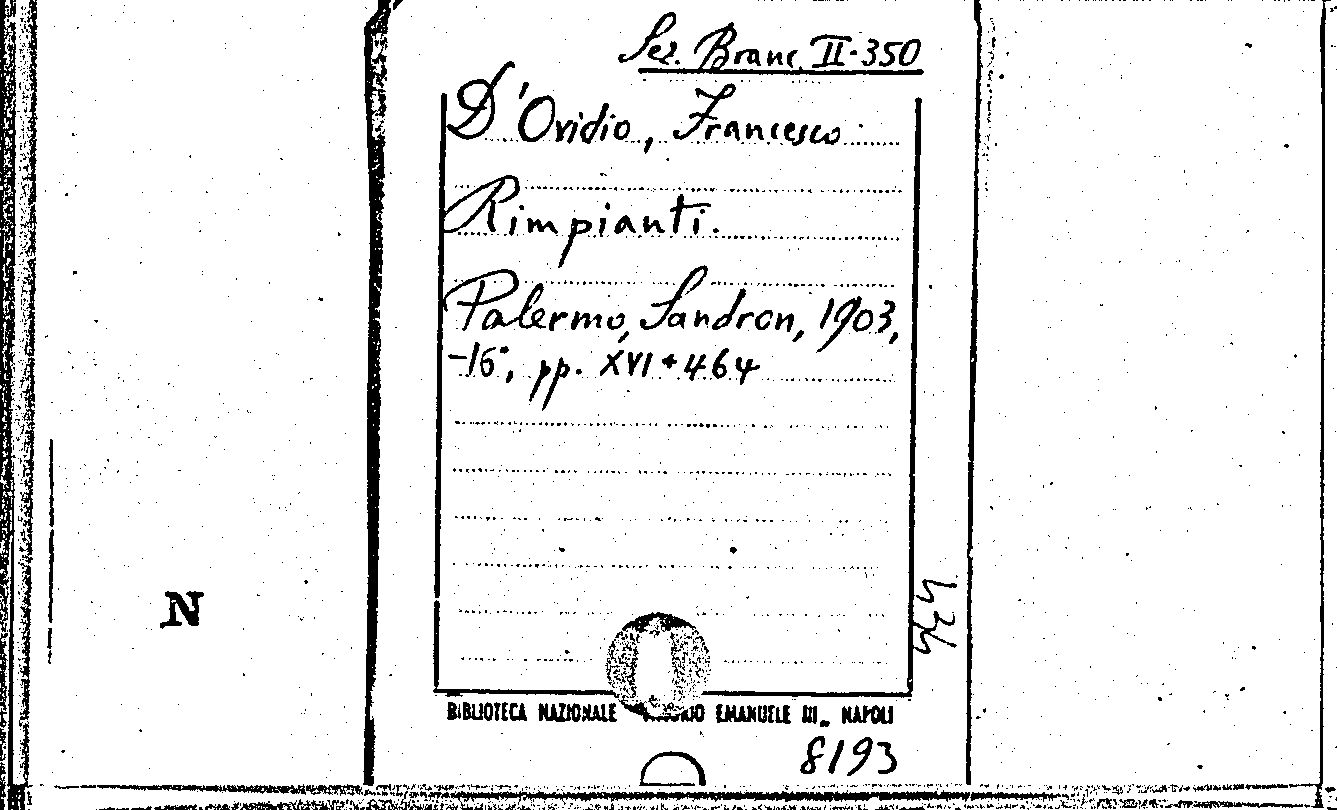 Sez. Branc. II-350
D'Ovidio, Francesco
Rimpianti.
Palermo, Sandron, 1903,
-16°, pp. XVI+464
N
BIBLIOTECA NAZIONALE EMANUELE III. NAPOLI
8193